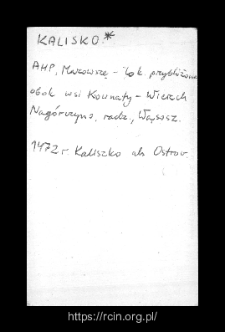 KALISKO *
AHP, Mazowsze - lok przybliżona
obok wsi Kownaty - Wierzch
Nagórczyno, radz., Wąsosz.
1472 r Kaliszko als Ostrow
https://rcin.org.pl/